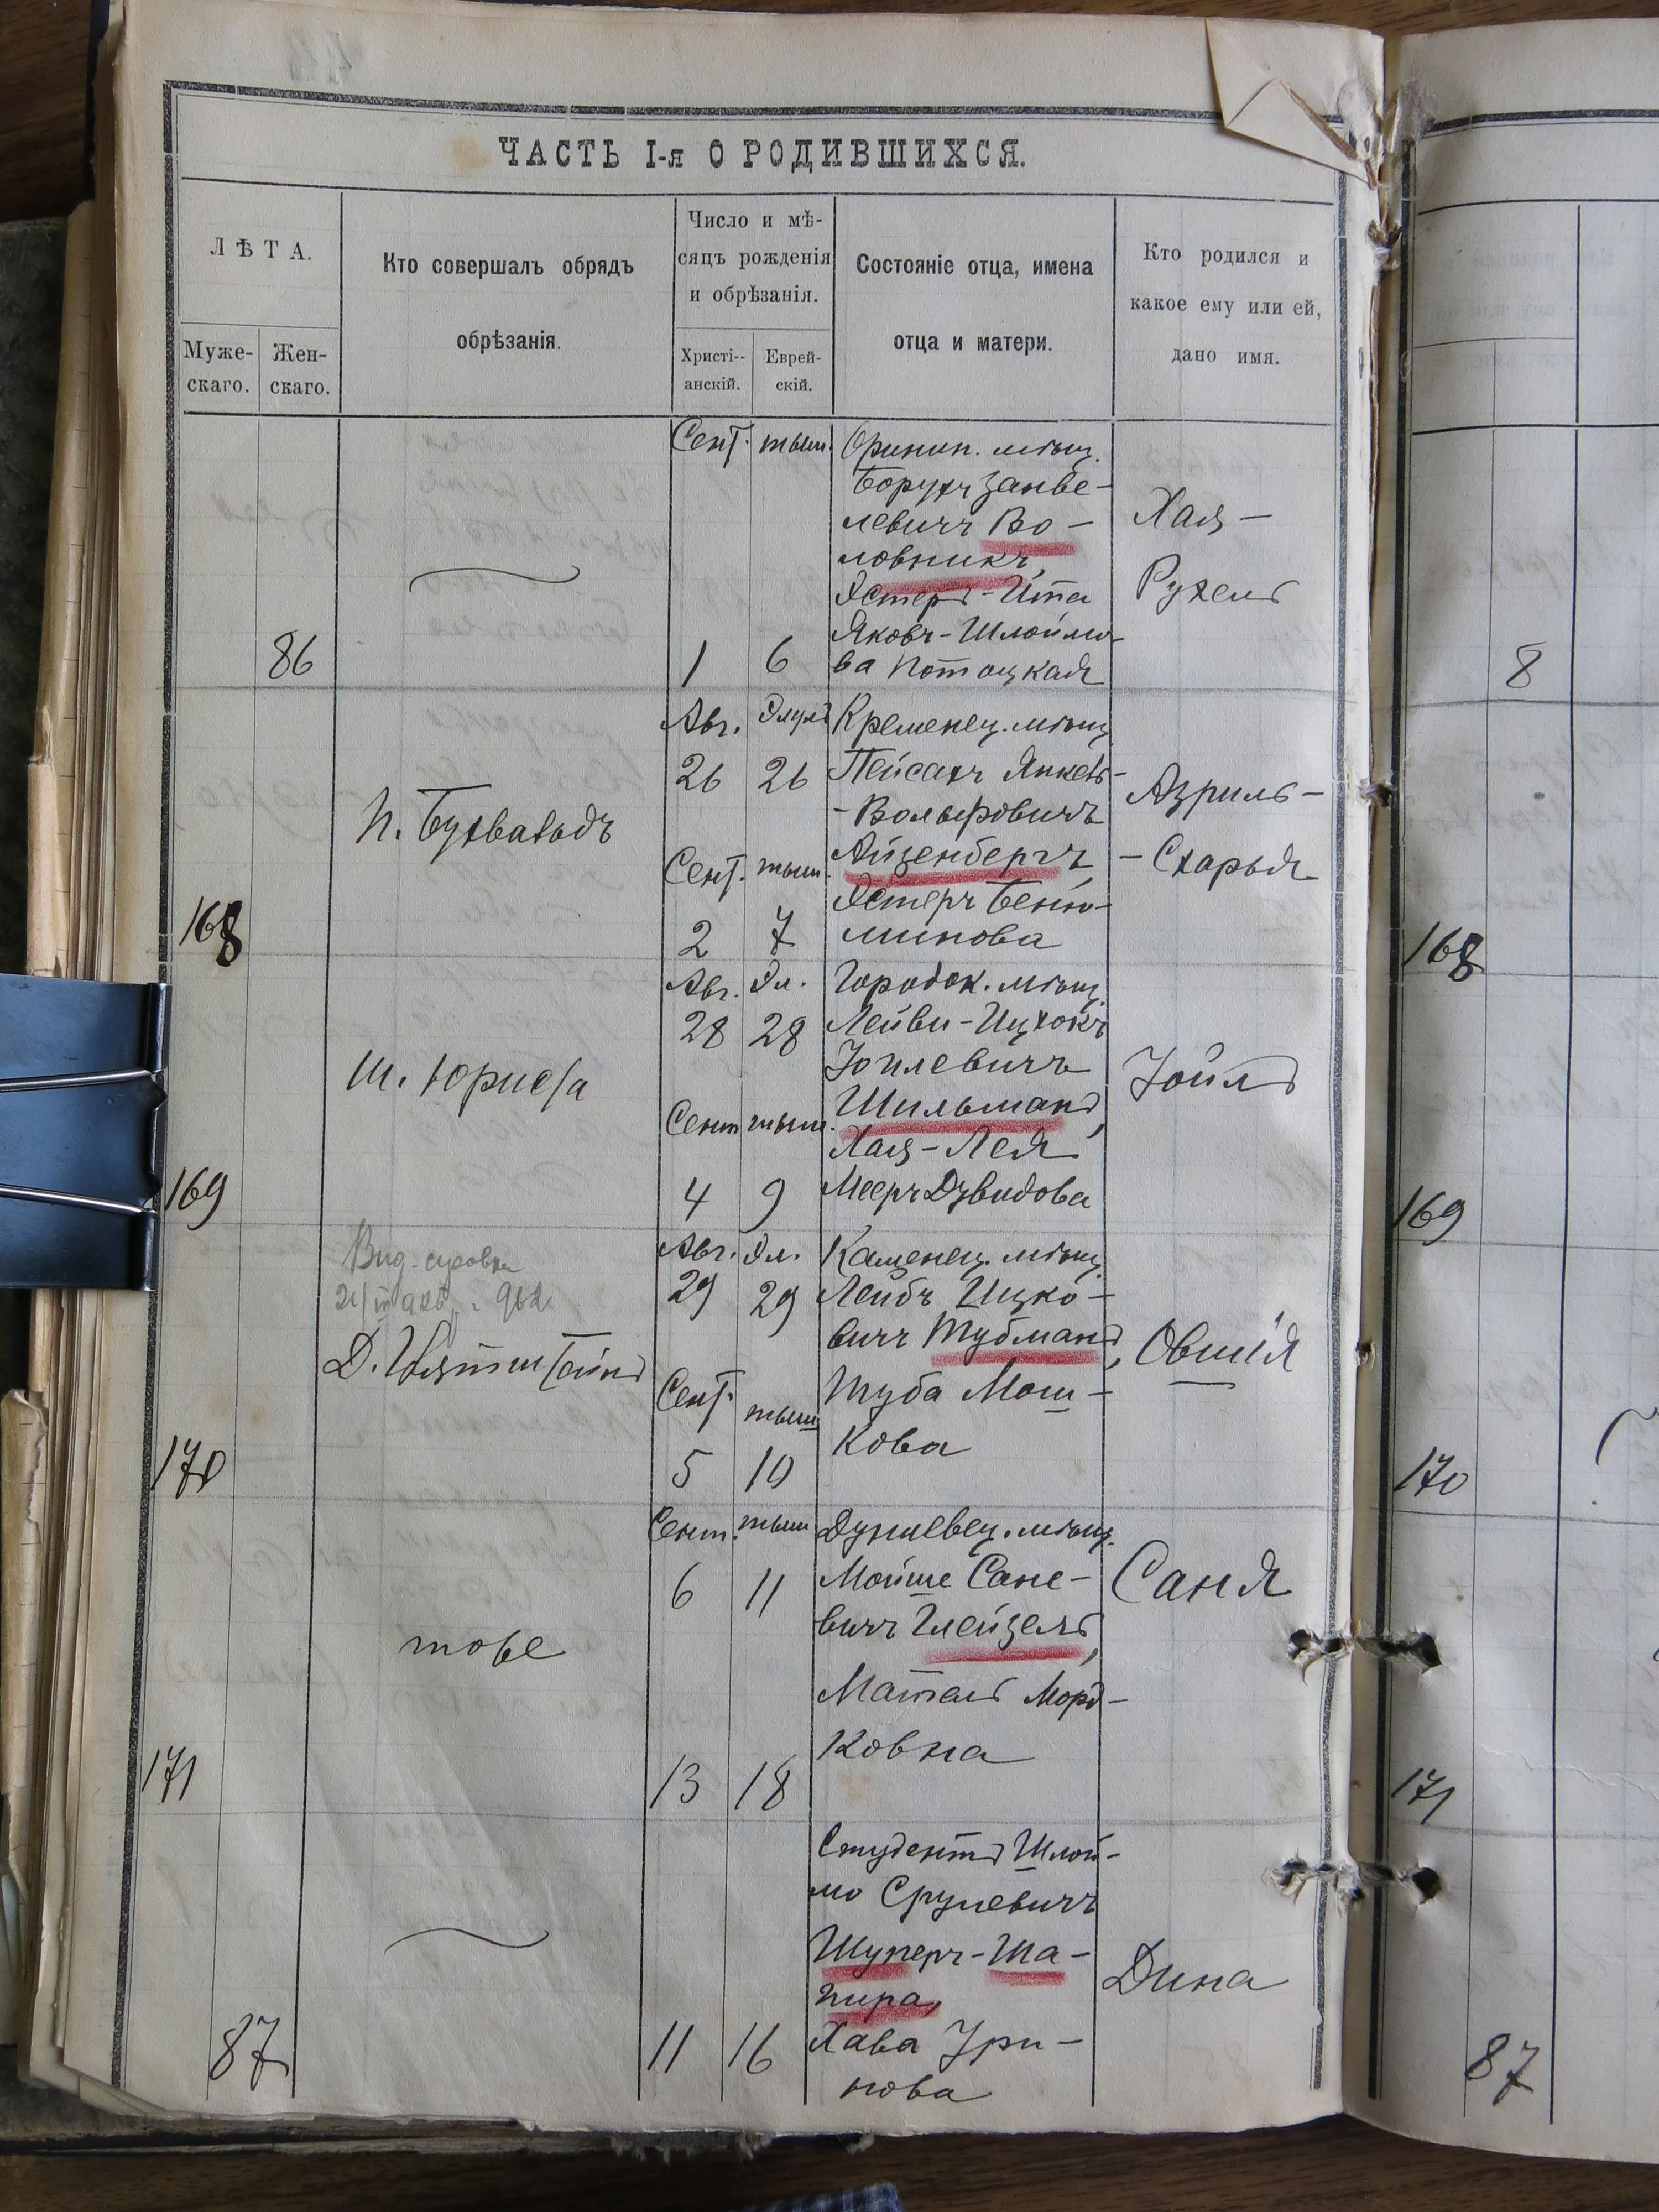 ЧАСТЬ I-я О РОДИВШИХСЯ.
ЛѢТА.
Муже-
скаго.
Жен-
скаго.
Кто совершалъ обрядъ
обрѣзанія.
Число и мѣ-
сяцъ рожденія
и обрѣзанія.
Христі--
анскій.
Еврей-
скій.
Состояніе отца, имена
отца и матери.
Кто родился и
какое ему или ей,
дано имя.
86
Сент. тыш.
1 6
Оринин. мѣщ.
Борухъ Занве-
левичъ Во-
ловникъ,
Эстеръ-Ита
Яковъ-Шлоймо-
ва Потоцкая
Хая-
Рухель
168
П. Бухвальдъ
Авг. Элулъ
26 26
Сент. тыш.
2 7
Кременец. мѣщ.
Пейсахъ Янкель-
-Вольфовичъ
Айзенбергъ,
Эстеръ Беню-
минова
Азриль-
-Схарья
169
Авг. Эл.
28 28
Сент тыш.
4 9
Городок. мѣщ.
Лейви-Ицхокъ
Іойлевичъ
Шильманъ,
Хая-Лея
Мееръ Дувидова
Іойлъ
170
Авг. Эл.
29 29
Сент. тыш
5 10
Каменец. мѣщ.
Лейбъ Ицко-
вичъ Тубманъ,
Туба Мош-
кова
Овшія
171
тоже
Сент. тыш
6 11
13 18
Дунаевец. мѣщ.
Мойше Сане-
вичъ Глейзеръ,
Матель Морд-
ковна
Саня
87
11 16
Студентъ Шлой-
мо Срулевичъ
Шуперъ-Ша-
пира,
Хава Ури-
нова
Дина
8
168
169
170
171
87